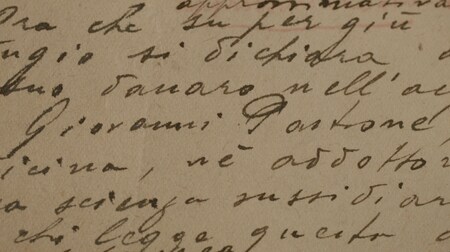 approssimativa
Ora che su per giù
ugio si dichiara
suo danaro nell'ac
Giovanni Pastone,
icina, nè addottor
a scienza sussidiar
chi legge questo